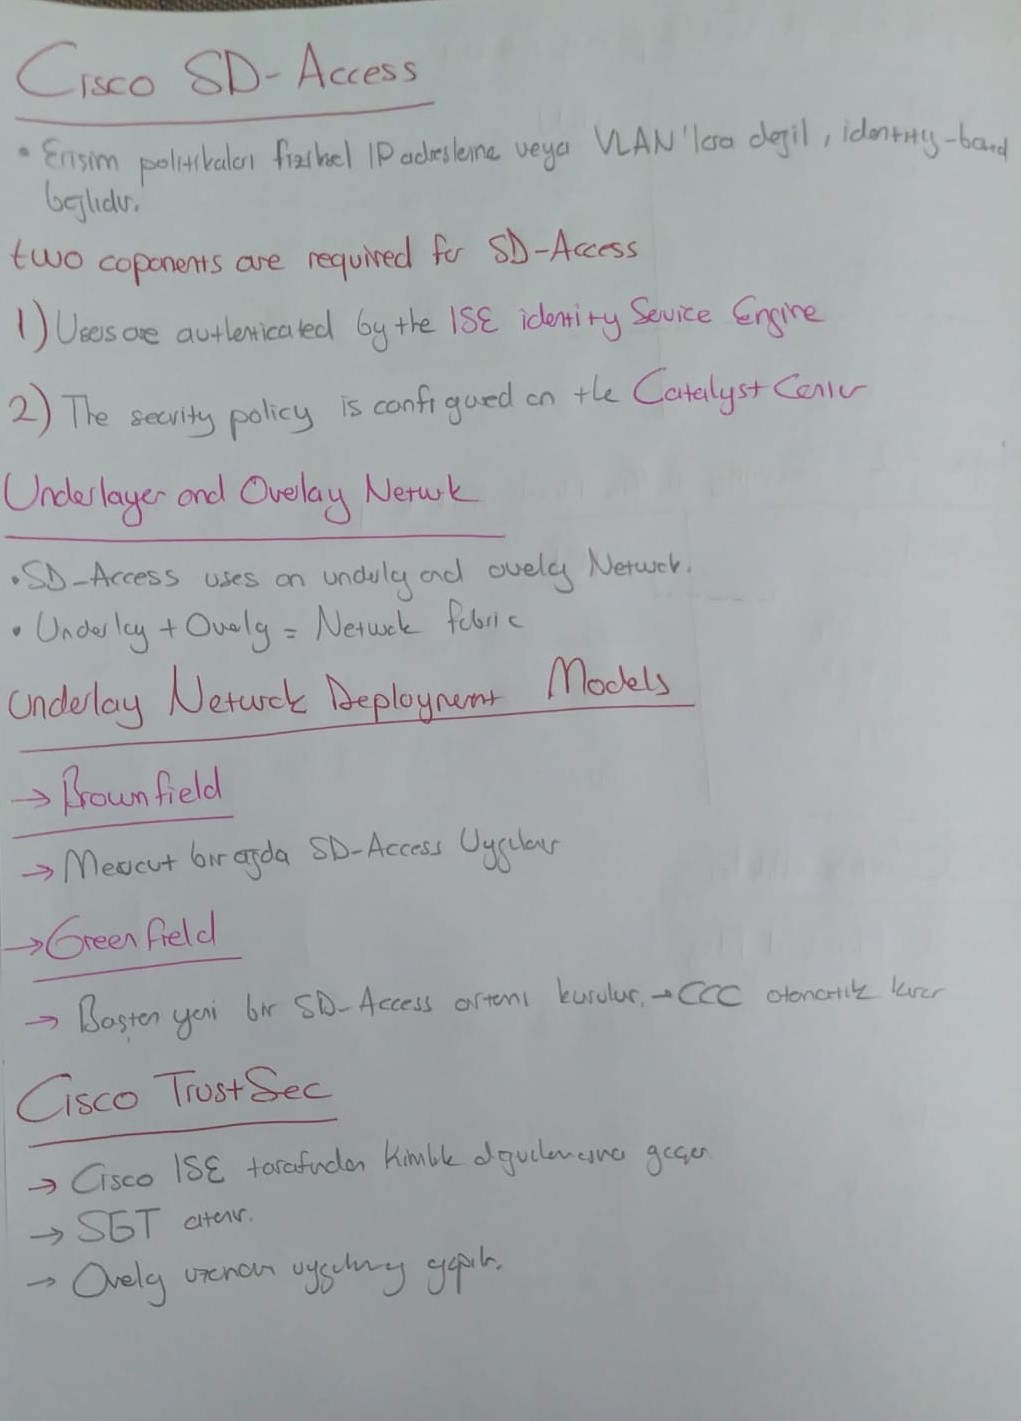 Cisco SD-Access
• Erişim politikaları fiziksel IP adreslerine veya VLAN'lara değil, identity-based
bağlıdır.
two coponents are required for SD-Access
1) Users are authenticated by the ISE identity Service Engine
2) The security policy is configured on the Catalyst Center
Underlayer and Overlay Netwrk
• SD-Access uses an underlay and overlay Network.
• Underlay + Overlay = Network fabric
Underlay Network Deployment Models
→ Brownfield
→ Mevcut bir ağda SD-Access Uygulanır
→ Greenfield
→ Baştan yeni bir SD-Access ortamı kurulur. → CCC otomatik kurar
Cisco TrustSec
→ Cisco ISE tarafından kimlik doğrulamasına geçer
→ SGT atanır.
→ Overlay uzerinden yapılır.